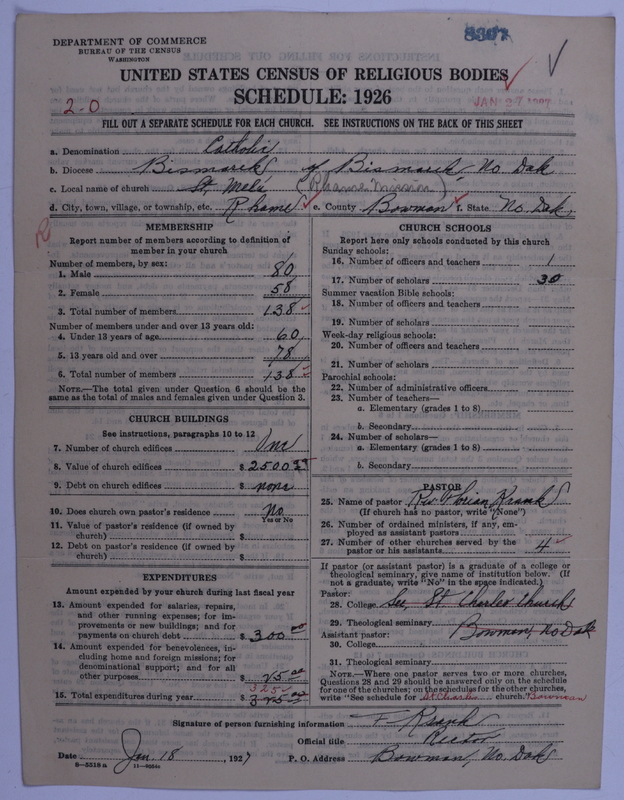 8307
DEPARTMENT OF COMMERCE
BUREAU OF THE CENSUS
WASHINGTON
UNITED STATES CENSUS OF RELIGIOUS BODIES
SCHEDULE: 1926
2-0
JAN 27 1927
FILL OUT A SEPARATE SCHEDULE FOR EACH CHURCH. SEE INSTRUCTIONS ON THE BACK OF THIS SHEET
a. Denomination Catholic
b. Diocese Bismarck of Bismarck, No. Dak
c. Local name of church St. Mel's
d. City, town, village, or township, etc. Rhame e. County Bowman f. State No. Dak.
MEMBERSHIP
Report number of members according to definition of
member in your church
Number of members, by sex:
1. Male 80
2. Female 58
3. Total number of members 138
Number of members under and over 13 years old:
4. Under 13 years of age 60
5. 13 years old and over 78
6. Total number of members 138
NOTE.—The total given under Question 6 should be the
same as the total of males and females given under Question 3.
CHURCH BUILDINGS
See instructions, paragraphs 10 to 12
7. Number of church edifices One
8. Value of church edifices $ 2500
9. Debt on church edifices $ none
10. Does church own pastor's residence No
Yes or No
11. Value of pastor's residence (if owned by
church) $
12. Debt on pastor's residence (if owned by
church) $
EXPENDITURES
Amount expended by your church during last fiscal year
13. Amount expended for salaries, repairs,
and other running expenses; for im-
provements or new building; and for
payments on church debt $ 300 00
14. Amount expended for benevolences, in-
cluding home and foreign missions; for
denominational support; and for all
other purposes $ 25 00
325
15. Total expenditures during year $
CHURCH SCHOOLS
Report here only schools conducted by this church
Sunday schools:
16. Number of officers and teachers 1
17. Number of scholars 30
Summer vacation Bible schools:
18. Number of officers and teachers
19. Number of scholars
Week-day religious schools:
20. Number of officers and teachers
21. Number of scholars
Parochial schools:
22. Number of administrative officers
23. Number of teachers—
a. Elementary (grades 1 to 8)
b. Secondary
24. Number of scholars—
a. Elementary (grades 1 to 8)
b. Secondary
PASTOR
25. Name of pastor Rev. Florian Krank
(If church has no pastor, write "None")
26. Number of ordained ministers, if any, em-
ployed as assistant pastors
27. Number of other churches served by the
pastor or his assistants 4
If pastor (or assistant pastor) is a graduate of a college or
theological seminary, give name of institution below. (If
not a graduate, write "No" in the space indicated.)
Pastor:
28. College See St. Charles Church
29. Theological seminary Bowman, No Dak
Assistant pastor:
30. College
31. Theological seminary
NOTE.—Where one pastor serves two or more churches,
Questions 28 and 29 should be answered only on the schedule
for one of the churches; on the schedules for the other churches,
write "See schedule for St Charles church. Bowman
Signature of person furnishing information F Krank
Official title Rector
Date Jan. 18 1927 P. O. Address Bowman, No. Dak
8-5518 a